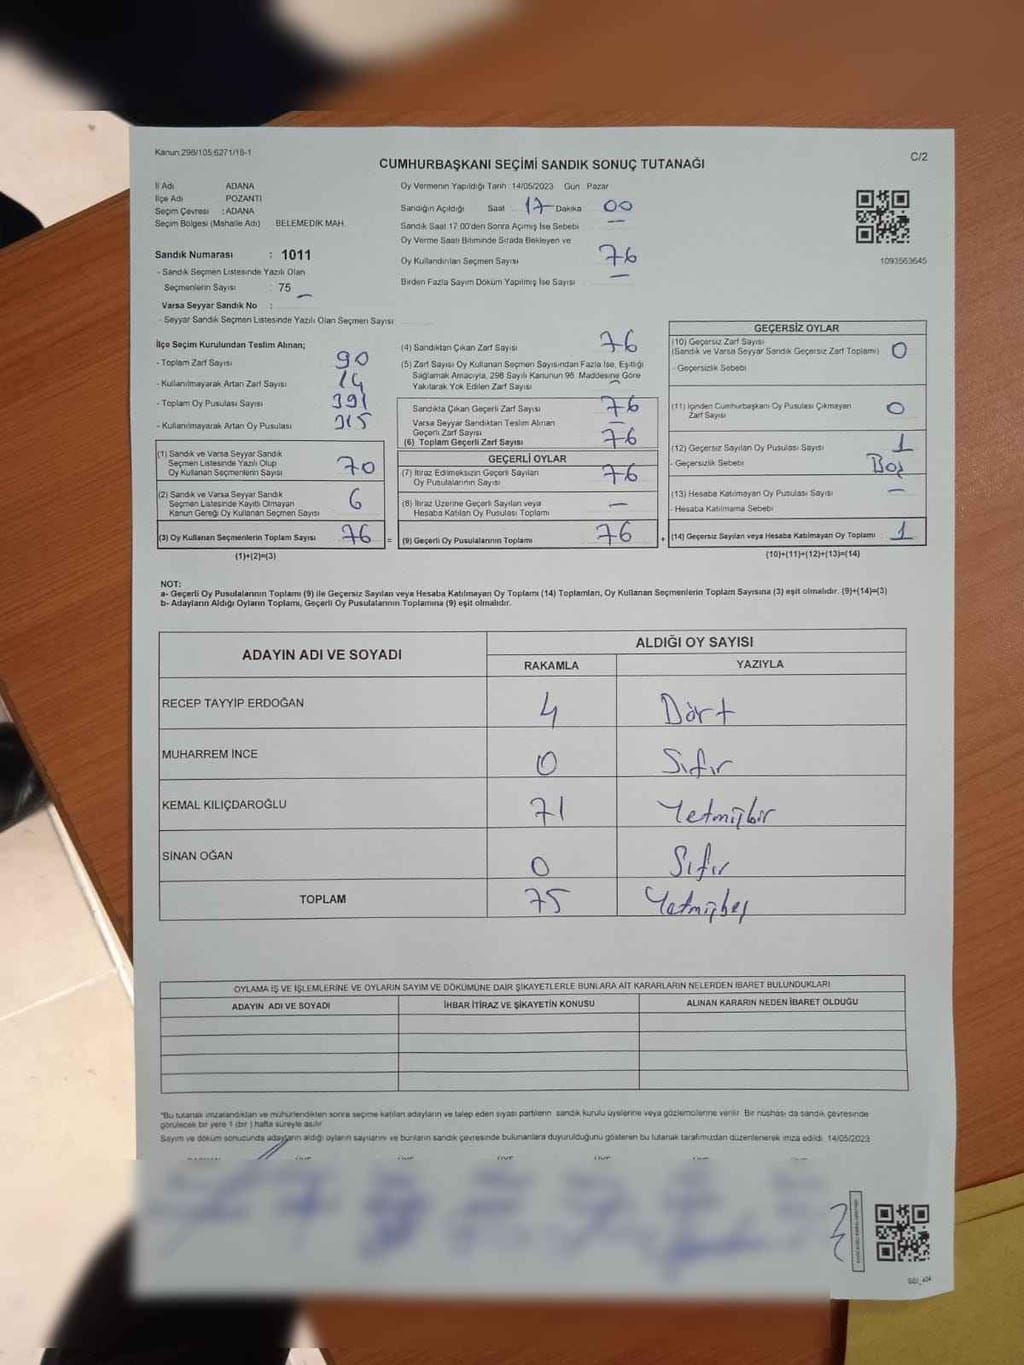 Kanun:298/105;6271/18-1
CUMHURBAŞKANI SEÇİMİ SANDIK SONUÇ TUTANAĞI
C/2
İl Adı ADANA
İlçe Adı POZANTI
Seçim Çevresi :ADANA
Seçim Bölgesi (Mahalle Adı) BELEMEDİK MAH.
Oy Vermenin Yapıldığı Tarih 14/05/2023 Gün Pazar
Sandığın Açıldığı Saat 17 Dakika 00
Sandık Saat 17.00'den Sonra Açımış İse Sebebi —
Oy Verme Saati Bitiminde Sırada Bekleyen ve
Oy Kullandırılan Seçmen Sayısı 76
Birden Fazla Sayım Döküm Yapılmış İse Sayısı —
1093563645
Sandık Numarası : 1011
- Sandık Seçmen Listesinde Yazılı Olan
Seçmenlerin Sayısı : 75
Varsa Seyyar Sandık No : —
- Seyyar Sandık Seçmen Listesinde Yazılı Olan Seçmen Sayısı
İlçe Seçim Kurulundan Teslim Alınan;
- Toplam Zarf Sayısı 90
- Kullanılmayarak Artan Zarf Sayısı 14
- Toplam Oy Pusulası Sayısı 391
- Kullanılmayarak Artan Oy Pusulası 315
(1) Sandık ve Varsa Seyyar Sandık
Seçmen Listesinde Yazılı Olup
Oy Kullanan Seçmenlerin Sayısı 70
(2) Sandık ve Varsa Seyyar Sandık
Seçmen Listesinde Kayıtlı Olmayan
Kanun Gereği Oy Kullanan Seçmen Sayısı 6
(3) Oy Kullanan Seçmenlerin Toplam Sayısı 76
(1)+(2)=(3)
(4) Sandıktan Çıkan Zarf Sayısı 76
(5) Zarf Sayısı Oy Kullanan Seçmen Sayısından Fazla İse, Eşitliği
Sağlamak Amacıyla, 298 Sayılı Kanunun 98. Maddesine Göre
Yakılarak Yok Edilen Zarf Sayısı —
Sandıkta Çıkan Geçerli Zarf Sayısı 76
Varsa Seyyar Sandıktan Teslim Alınan
Geçerli Zarf Sayısı —
(6) Toplam Geçerli Zarf Sayısı 76
GEÇERLİ OYLAR
(7) İtiraz Edilmeksizin Geçerli Sayılan
Oy Pusulalarının Sayısı 76
(8) İtiraz Üzerine Geçerli Sayılan veya
Hesaba Katılan Oy Pusulası Toplamı —
= (9) Geçerli Oy Pusulalarının Toplamı 76
GEÇERSİZ OYLAR
(10) Geçersiz Zarf Sayısı
(Sandık ve Varsa Seyyar Sandık Geçersiz Zarf Toplamı) 0
- Geçersizlik Sebebi
(11) İçinden Cumhurbaşkanı Oy Pusulası Çıkmayan
Zarf Sayısı 0
(12) Geçersiz Sayılan Oy Pusulası Sayısı 1
- Geçersizlik Sebebi Boş
(13) Hesaba Katılmayan Oy Pusulası Sayısı —
- Hesaba Katılmama Sebebi
+ (14) Geçersiz Sayılan veya Hesaba Katılmayan Oy Toplamı 1
(10)+(11)+(12)+(13)=(14)
NOT:
a- Geçerli Oy Pusulalarının Toplamı (9) ile Geçersiz Sayılan veya Hesaba Katılmayan Oy Toplamı (14) Toplamları, Oy Kullanan Seçmenlerin Toplam Sayısına (3) eşit olmalıdır. (9)+(14)=(3)
b- Adayların Aldığı Oyların Toplamı, Geçerli Oy Pusulalarının Toplamına (9) eşit olmalıdır.
ADAYIN ADI VE SOYADI
ALDIĞI OY SAYISI
RAKAMLA YAZIYLA
RECEP TAYYİP ERDOĞAN 4 Dört
MUHARREM İNCE 0 Sıfır
KEMAL KILIÇDAROĞLU 71 Yetmişbir
SİNAN OĞAN 0 Sıfır
TOPLAM 75 Yetmişbeş
OYLAMA İŞ VE İŞLEMLERİNE VE OYLARIN SAYIM VE DÖKÜMÜNE DAİR ŞİKAYETLERLE BUNLARA AİT KARARLARIN NELERDEN İBARET BULUNDUKLARI
ADAYIN ADI VE SOYADI İHBAR İTİRAZ VE ŞİKAYETİN KONUSU ALINAN KARARIN NEDEN İBARET OLDUĞU
*Bu tutanak imzalandıktan ve mühürlendikten sonra seçime katılan adayların ve talep eden siyasi partilerin sandık kurulu üyelerine veya gözlemcilerine verilir. Bir nüshası da sandık çevresinde
görülecek bir yere 1 (bir) hafta süreyle asılır
Sayım ve döküm sonucunda adayların aldığı oyların sayılarını ve bunların sandık çevresinde bulunanlara duyurulduğunu gösteren bu tutanak tarafımızdan düzenlenerek imza edildi. 14/05/2023